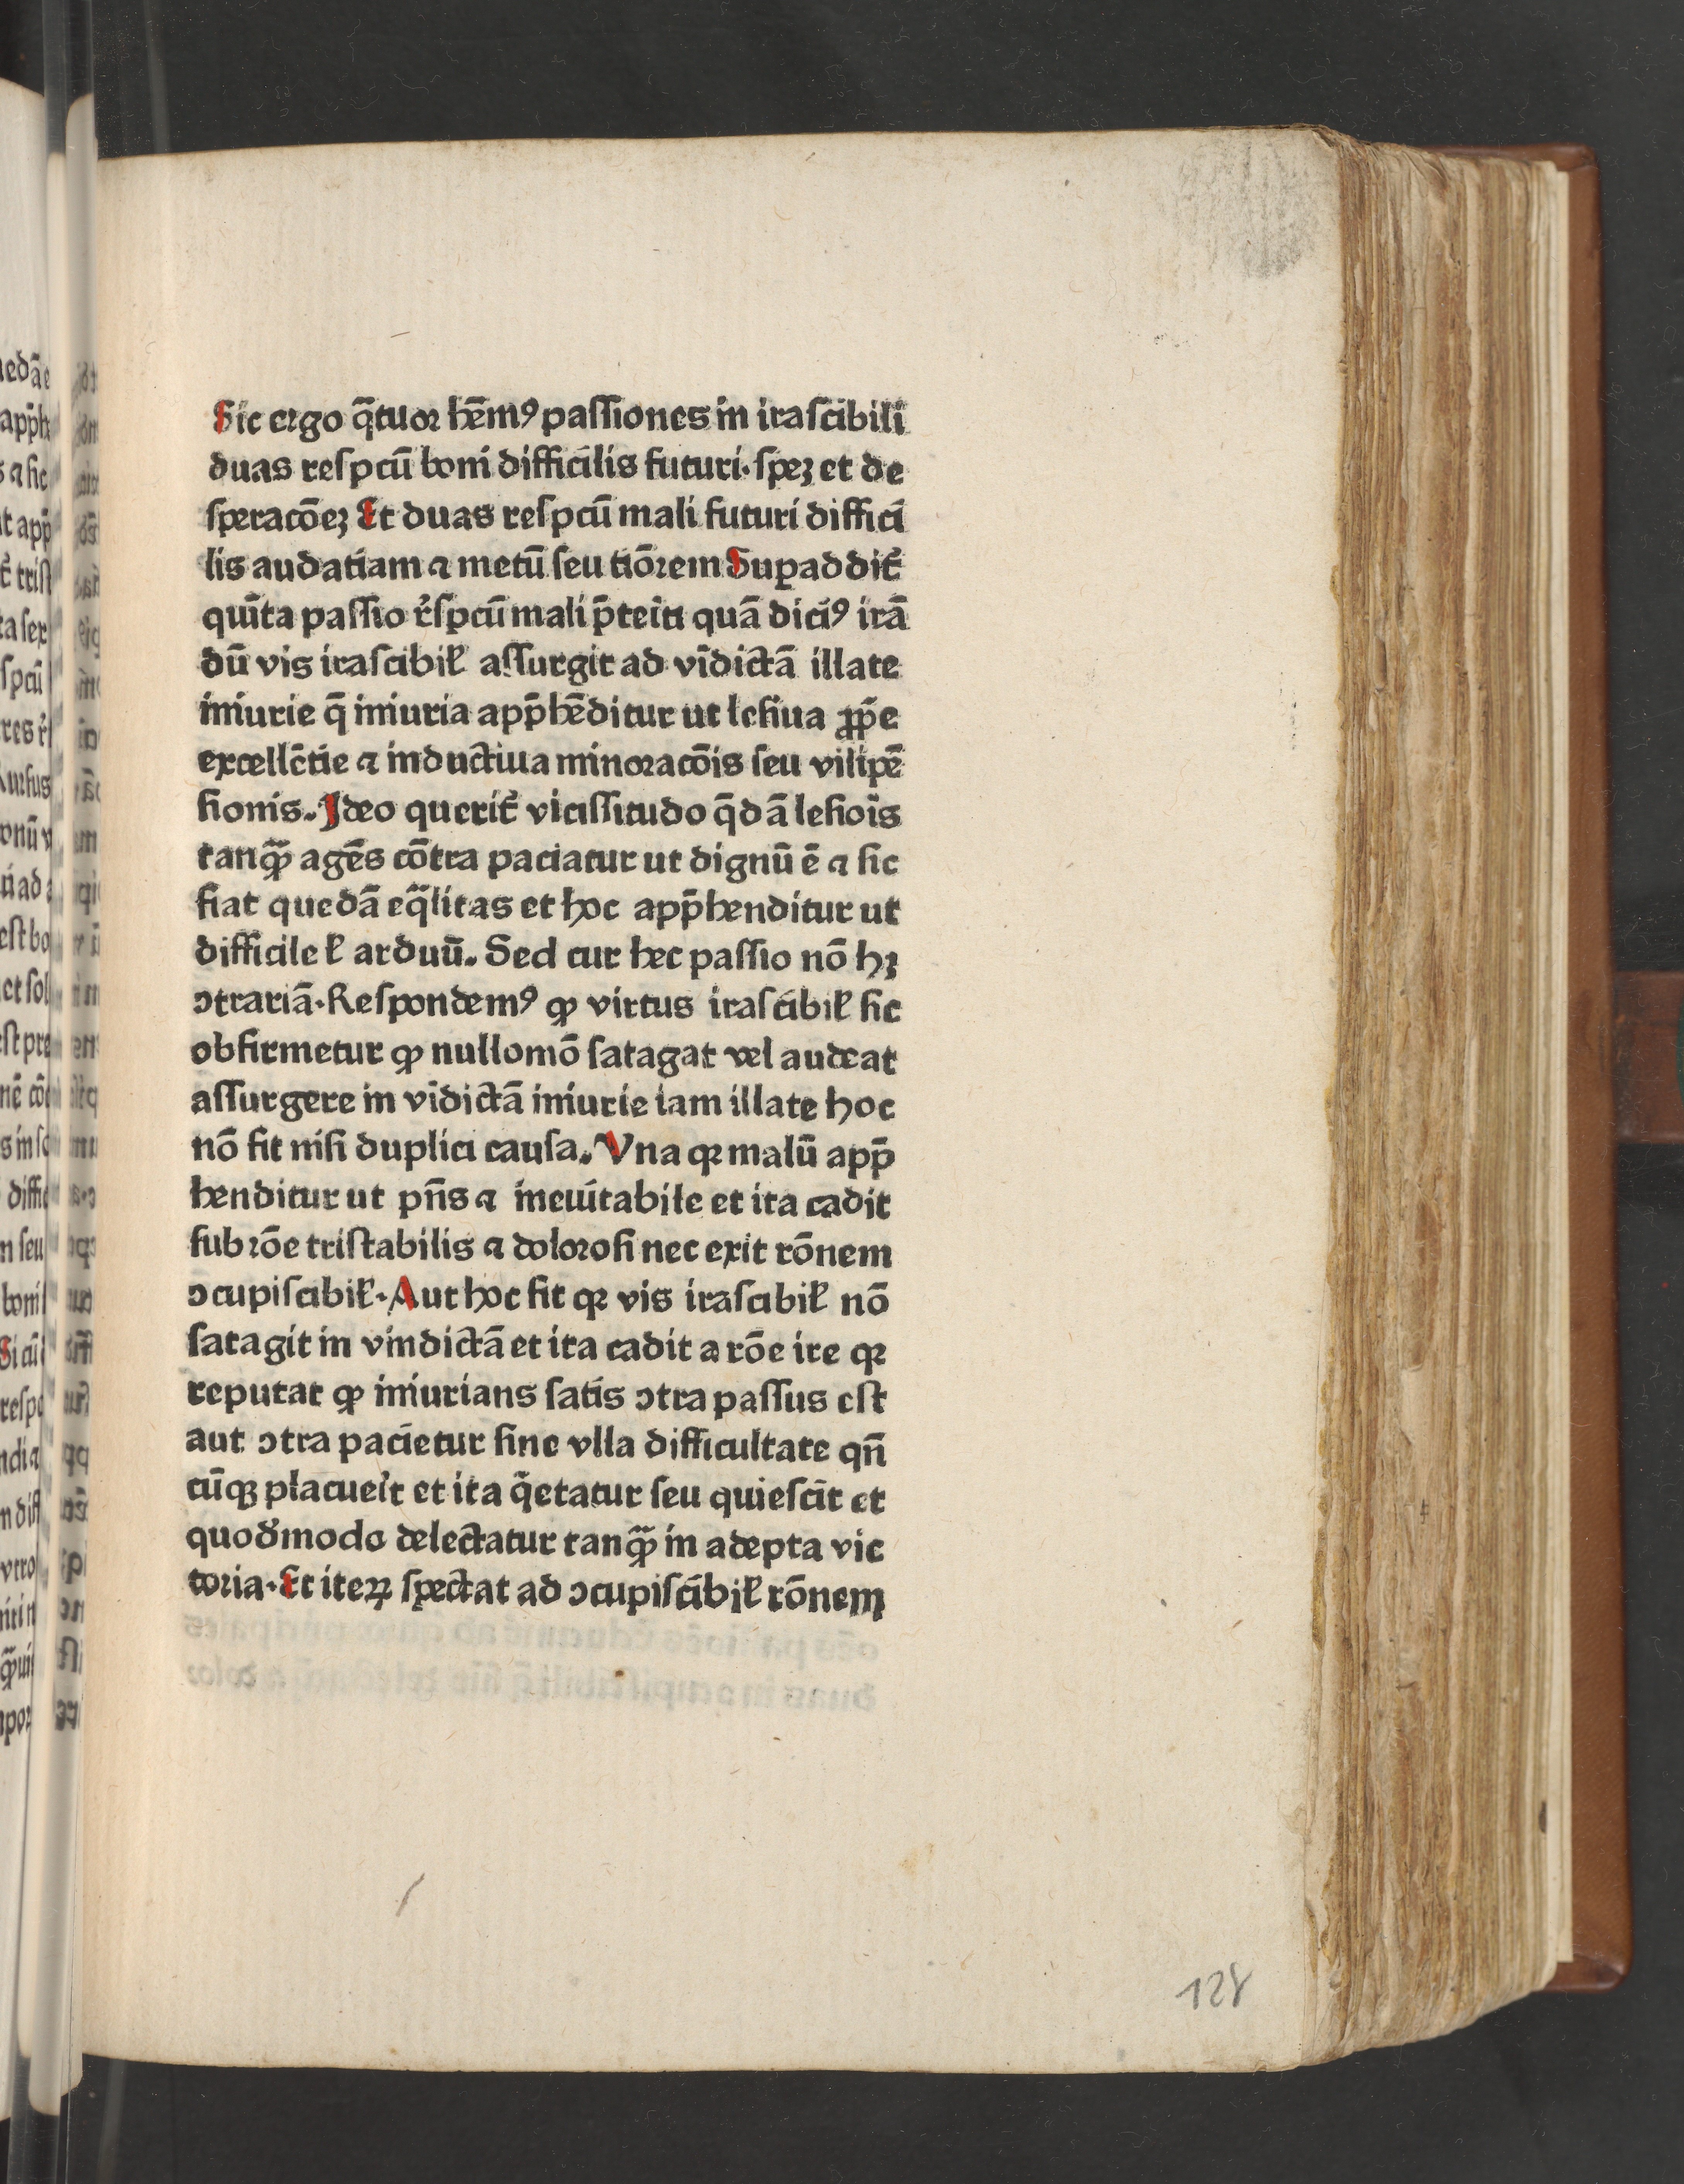 Sic ergo q̄tuor hēmꝰ paſſiones in iraſcibili
duas reſpcū boni difficilis futuri· ſpeꝫ et de
ſperacōeꝫ Et duas reſpcū mali futuri diffici
lis audatiam ⁊ metū ſeu tiōrem Supaddit᷑
quīta paſſio r̓ſpcū mali p̄teīti quā dicīꝰ irā
dū vis iraſcibił aſſurgit ad vīdictā illate
iniurie q̄ iniuria app̄hēditur ut leſiua ꝓp̄e
excellētie ⁊ inductiua minoracōis ſeu vilipē
ſionis. Ideo querit᷑ viciſſitudo q̄dā leſiois
tanqᷓꝫ agēs cōtra paciatur ut dignū ē ⁊ ſic
fiat quedā eqᷓlitas et hoc app̄henditur ut
difficile ł arduū. Sed cur hec paſſio nō hꝫ
ↄtrariā· Reſpondemꝰ ꝙ virtus iraſcibił ſic
obfirmetur ꝙ nullomō ſatagat vel audeat
aſſurgere in vīdictā iniurie iam illate hoc
nō fit niſi duplici cauſa. Vna qꝛ malū app̄
henditur ut pn̄s ⁊ ineuitabile et ita cadit
ſub rōe triſtabilis ⁊ doloroſi nec exit rōnem
ↄcupiſcibił· Aut hoc fit qꝛ vis iraſcibił nō
ſatagit in vindictā et ita cadit a rōe ire qꝛ
reputat ꝙ iniurians ſatis ↄtra paſſus eſt
aut ↄtra pacietur ſine vlla difficultate qn̄
cūqꝫ placueīt et ita q̄etatur ſeu quieſcit et
quod᷑modo delectatur tanqᷓꝫ in adepta vic
toria· Et iteꝝ ſpectat ad ↄcupiſcibił rōnem
128